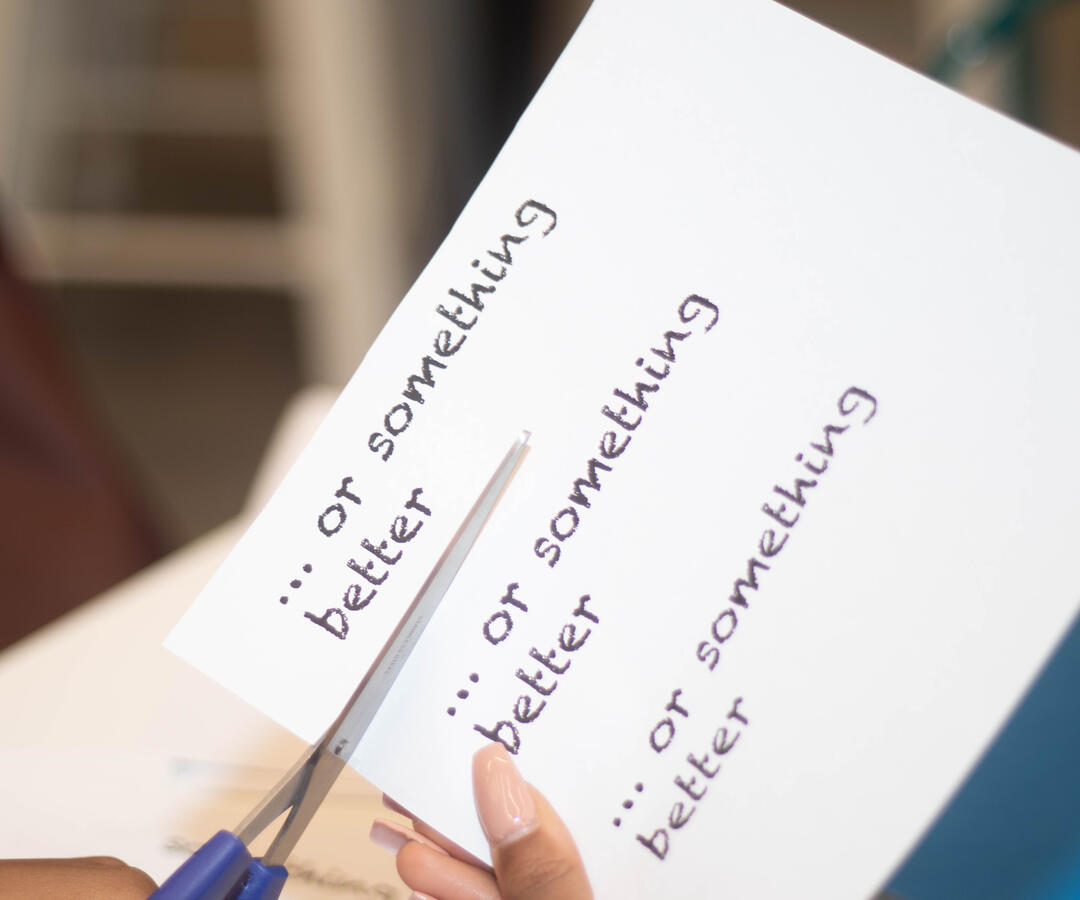 ... or something
better
... or something
better
... or something
better